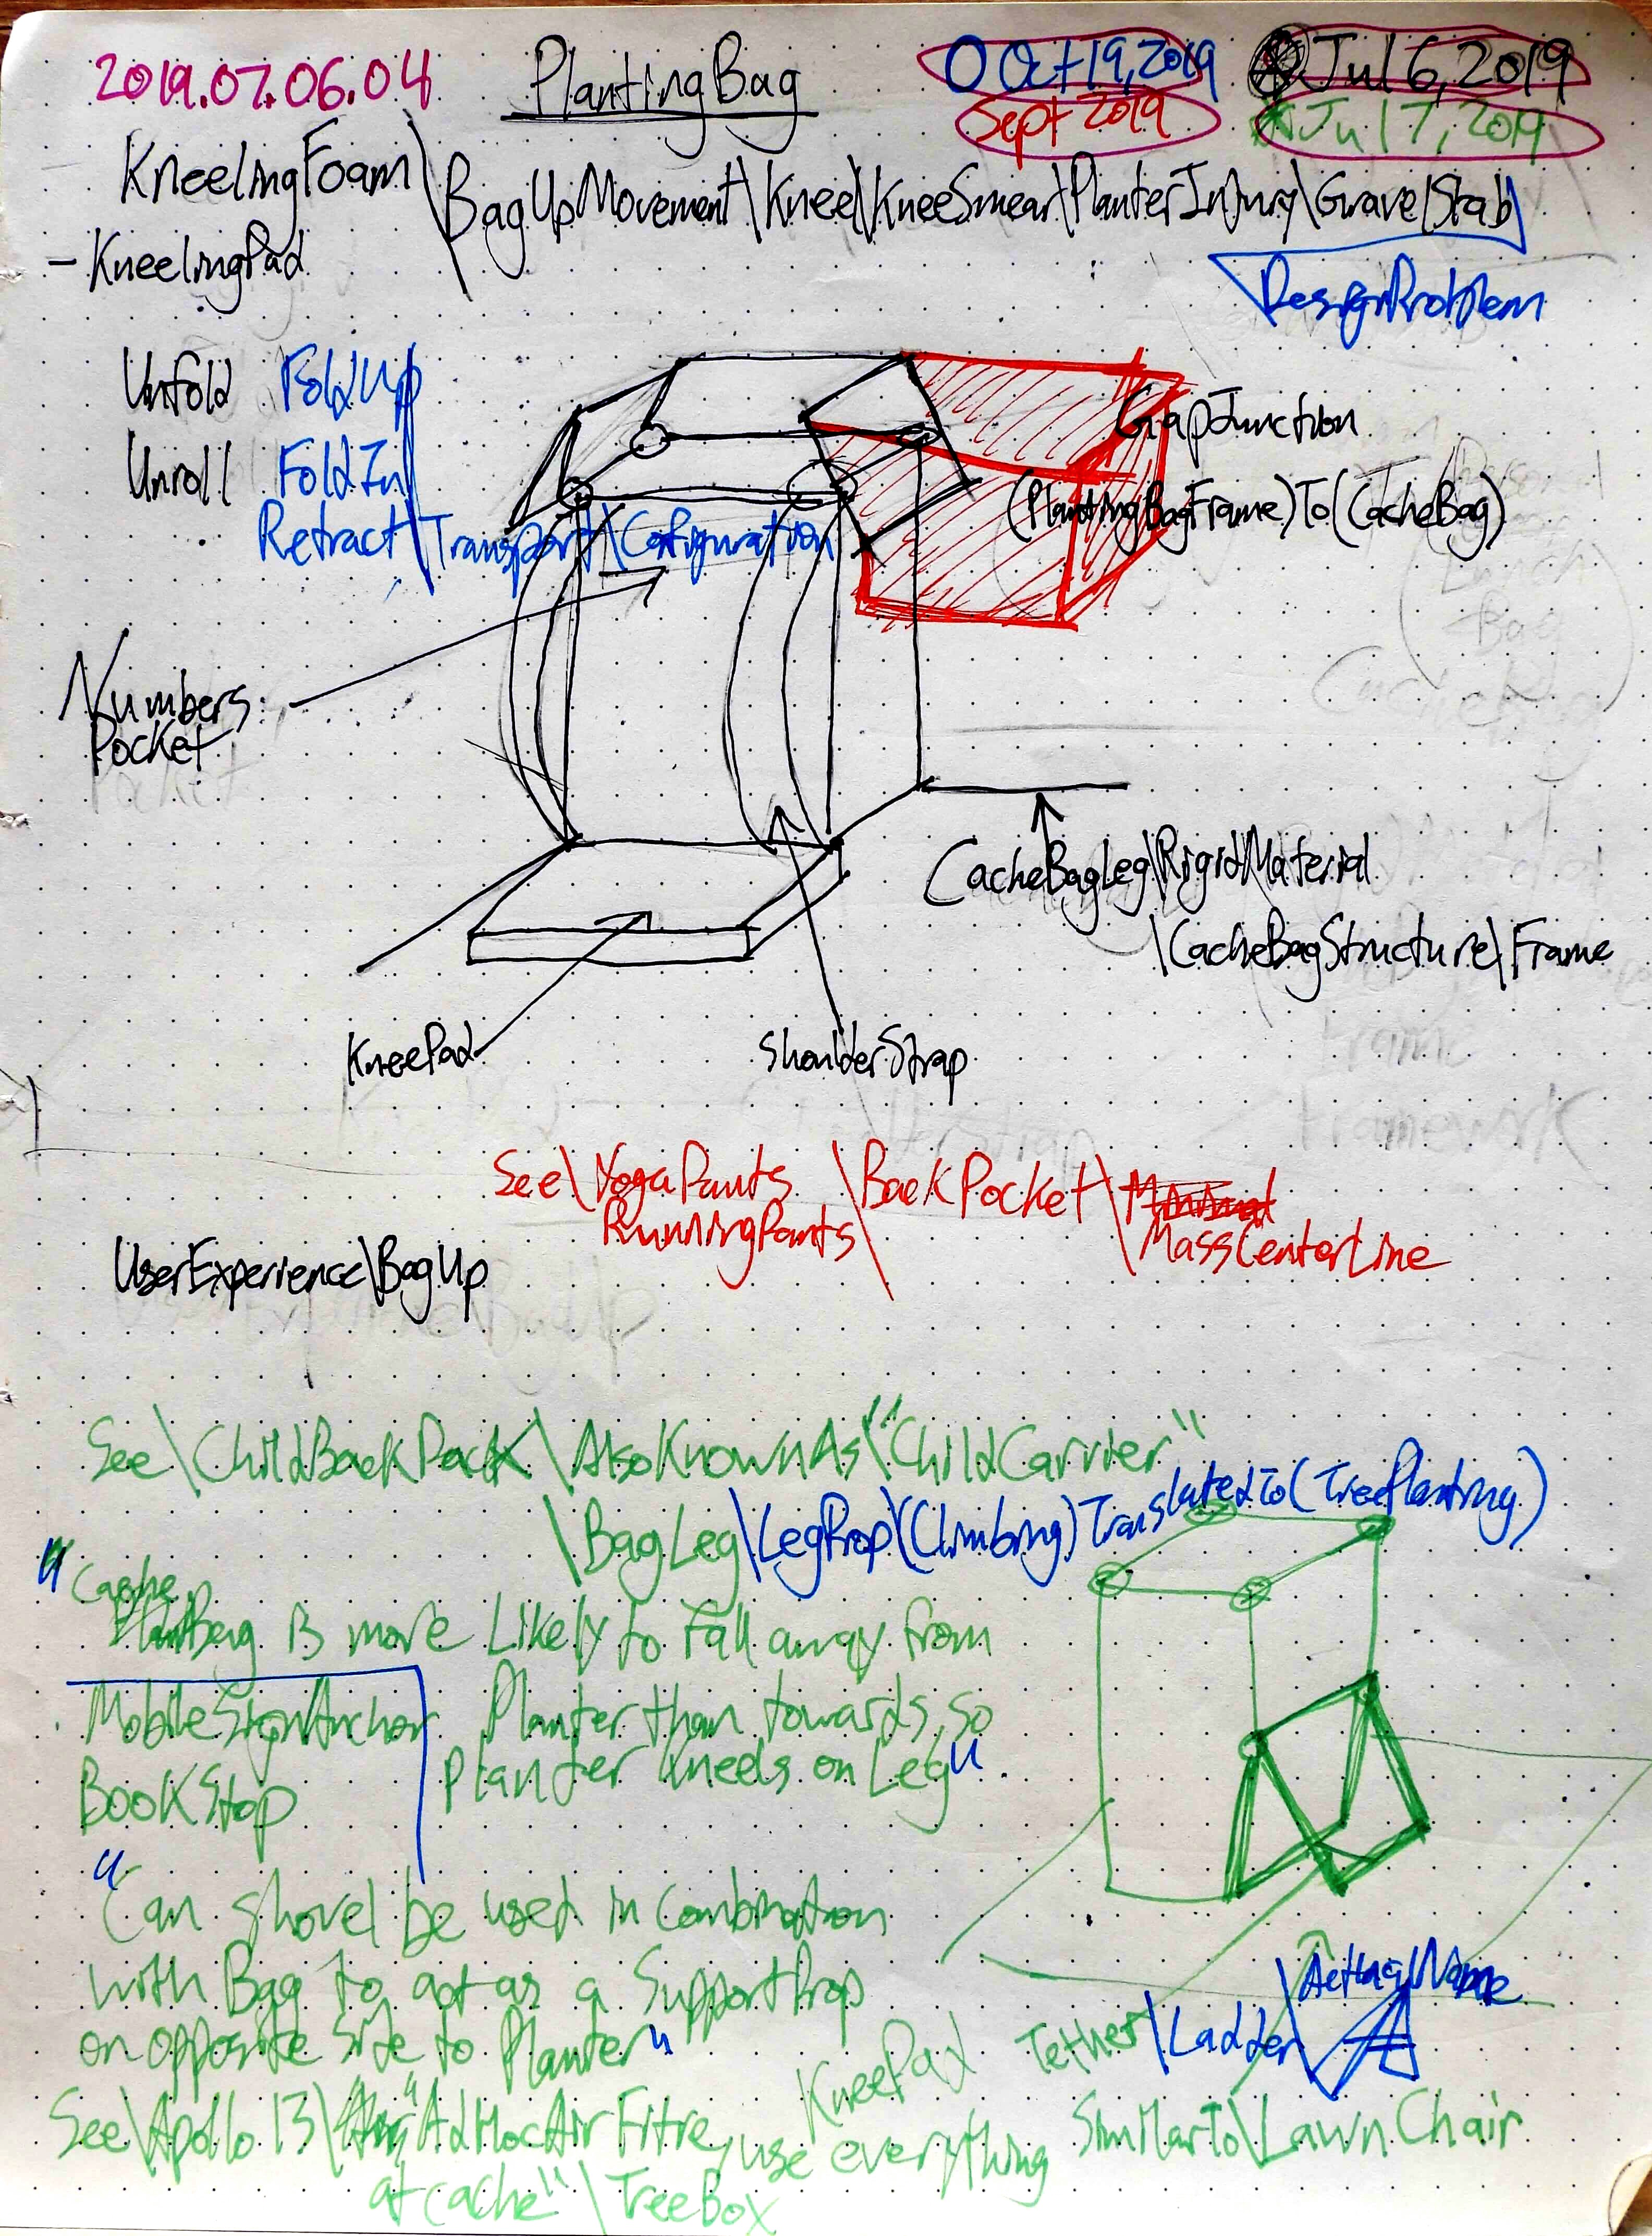 2019.07.06.04 PlantingBag O Oct 19, 2019 Jul 6, 2019
Sept 2019 Jul 7, 2019
KneelingFoam\BagUpMovement\Kneel\KneeSmear\PlanterInjury\GravelStab
- KneelingPad
DesignProblem
Unfold FoldUp
Unroll FoldIn
Retract\Transport\Configuration
GapJunction
(PlantingBagFrame)To(CacheBag)
Numbers
Pocket
CacheBagLeg\RigidMaterial
\CacheBagStructure\Frame
KneePad
ShoulderStrap
See\YogaPants \BackPocket\
RunningPants \MassCenterLine
UserExperience\BagUp
See\ChildBackPack\AlsoKnownAs\"ChildCarrier"
\BagLeg\LegProp\(Climbing)TranslatedTo(TreePlanting)
"Cache
Bag is more likely to fall away from
Planter than towards, so
Planter kneels on Leg"
MobileSignAnchor
BookStop
"Can shovel be used in combination
with Bag to act as a Support Prop
on opposite side to Planter"
KneePad Tether\Ladder\
SimilarTo\LawnChair
See\Apollo 13\"AdHocAirFiltre, use everything
at cache"\TreeBox